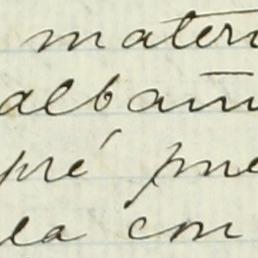 materi
albañi
pré pue
la con